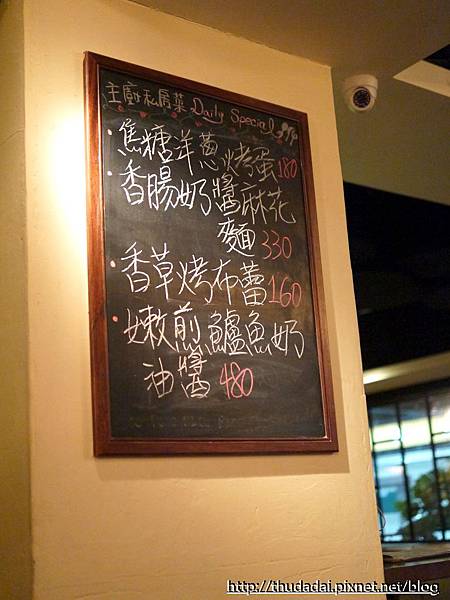 主廚私房菜 Daily Special
·焦糖洋蔥烤蛋180
·香腸奶醬麻花
麵330
·香草烤布蕾160
·嫩煎鱸魚奶
油醬480
http://thudadai.pixnet.net/blog